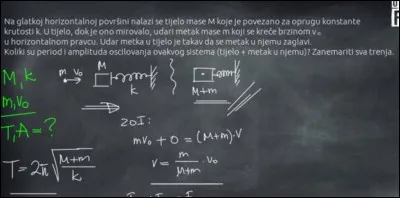 Na glatkoj horizontalnoj površini nalazi se tijelo mase M koje je povezano za oprugu konstante
krutosti k. U tijelo, dok je ono mirovalo, udari metak mase m koji se kreće brzinom v₀
u horizontalnom pravcu. Udar metka u tijelo je takav da se metak u njemu zaglavi.
Koliki su period i amplituda oscilovanja ovakvog sistema (tijelo + metak u njemu)? Zanemariti sva trenja.
M, k
m, v₀
T, A = ?
m v₀ M k
M+m
ZOI:
mv₀ + 0 = (M+m)·V
V = m/(M+m) · v₀
T = 2π √((M+m)/k)